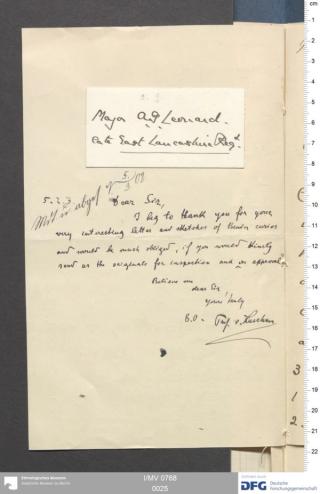 Major A.G. Leonard.
late East Lancashire Regt.
5/3 09
Dear Sir,
I beg to thank you for your
very interesting letter and sketches of Benin curios
and would be much obliged, if you would kindly
send us the originals for inspection and on approval.
Believe me
dear Sir
yours truly
cm
1
2
3
4
5
6
7
8
9
10
11
12
13
14
15
16
17
18
19
20
21
22
Ethnologisches Museum
Staatliche Museen zu Berlin
I/MV 0768
0025
DFG Deutsche
Forschungsgemeinschaft